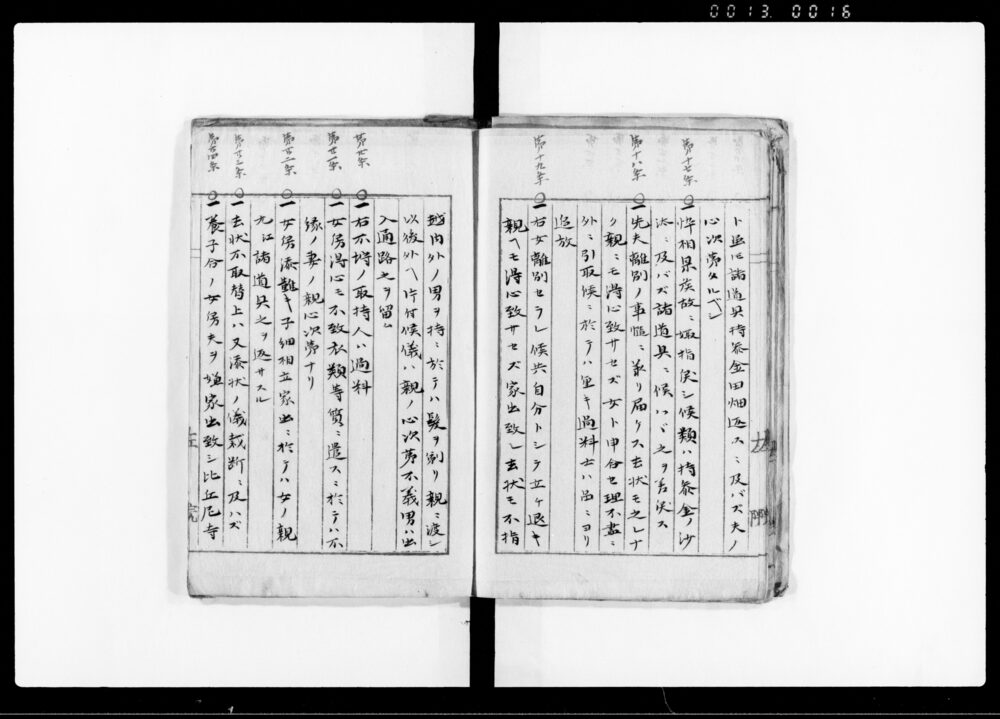 0013 0016
ト出ル諸道具持参金田畑返スニ及バズ夫ノ
心次第タルベシ
第十七条
一 忰相果候故ニ娵指戻シ候類ハ持参金ノ沙
汰ニ及バズ諸道具ニ候ハヾ之ヲ差戻ス
第十八条
一 先夫離別ノ事慥ニ承リ届ケズ去状モ之レナ
ク親ニモ得心致サセズ女ト申合セ理不尽ニ
外ニ引取候ニ於テハ重キ過料士ハ品ニヨリ
追放
第十九条
一 右女離別セラレ候共自分トシテ立ケ退キ
親ヘモ得心致サセズ家出致シ去状モ不指
越内外ノ男ヲ持ニ於テハ髪ヲ剃リ親ニ渡シ
以後外ヘ片付候儀ハ親ノ心次第不義男ハ出
入通路之ヲ留ム
第廿条
一 右不埒ノ取持人ハ過料
第廿一条
一 女房得心モ不致衣類等質ニ遣スニ於テハ不
縁ノ妻ノ親心次第ナリ
第廿二条
一 女房添難キ子細相立家出ニ於テハ女ノ親
九江諸道具之ヲ返サスル
第廿三条
一 去状不取替上ハ又添状ノ儀裁断ニ及ハズ
第廿四条
一 養子合ノ女房夫ヲ嫌家出致シ比丘尼寺
左院